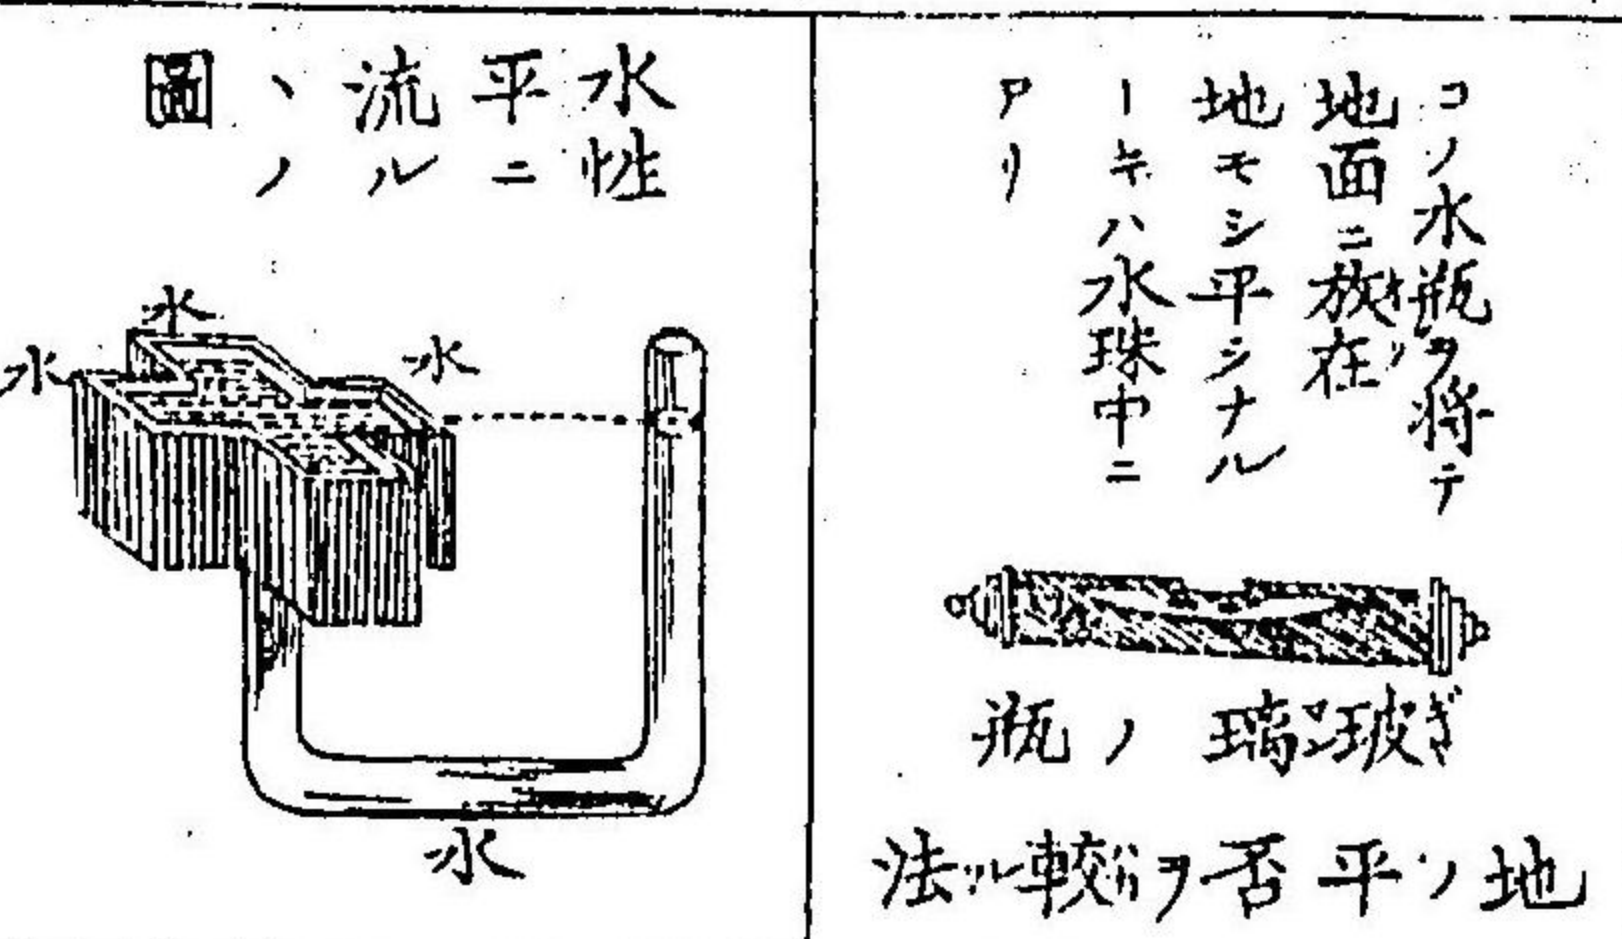 コノ水瓶ヲ将テ
地面ニ放在
地モシ平シナル
トキハ水珠中ニ
アリ
玻璃ノ瓶
地ノ平否ヲ較ル法
水性
平ニ
流ル
ヽノ
圖
水
水
水
水